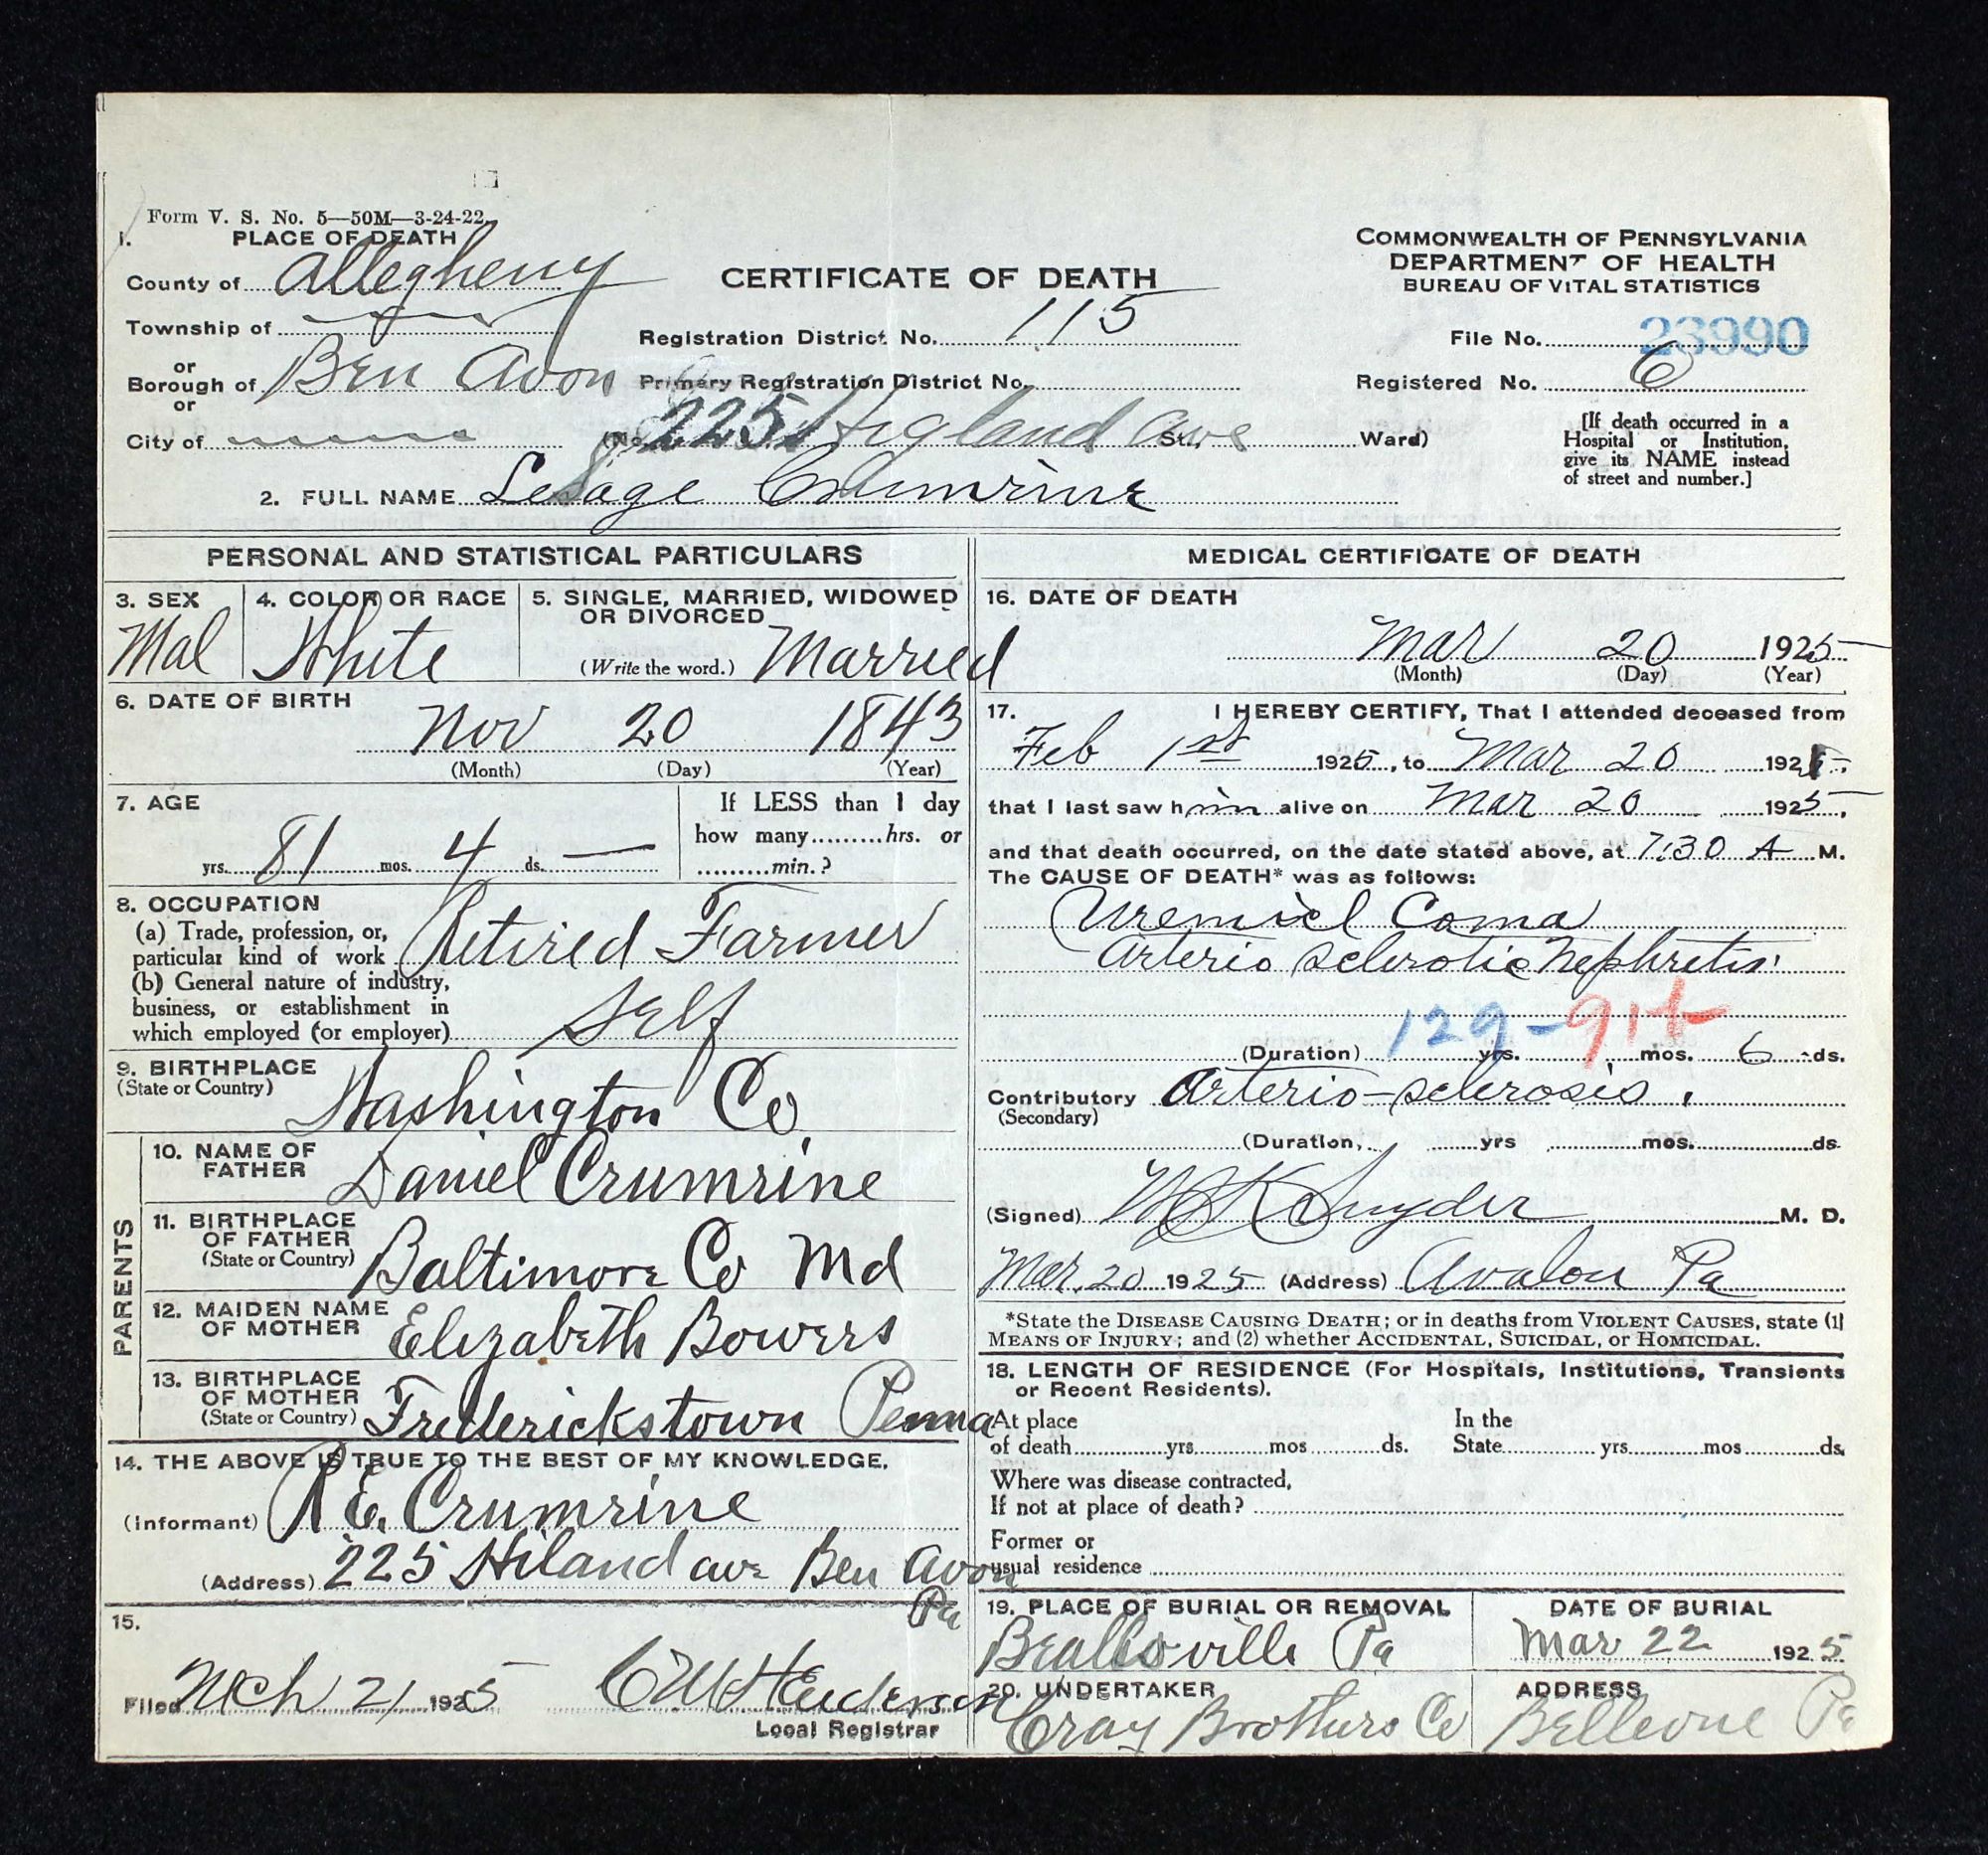 Form V. S. No. 5—50M—3-24-22.
1. PLACE OF DEATH
County of Allegheny
Township of
or
Borough of Ben Avon
or
City of
CERTIFICATE OF DEATH
Registration District No. 115
Primary Registration District No.
(No. 225 Higland Ave St., Ward)
COMMONWEALTH OF PENNSYLVANIA
DEPARTMENT OF HEALTH
BUREAU OF VITAL STATISTICS
File No. 23990
Registered No. 6
[If death occurred in a
Hospital or Institution,
give its NAME instead
of street and number.]
2. FULL NAME Lesage Crumrine
PERSONAL AND STATISTICAL PARTICULARS
3. SEX
Mal
4. COLOR OR RACE
White
5. SINGLE, MARRIED, WIDOWED
OR DIVORCED
(Write the word.) Married
6. DATE OF BIRTH
Nov 20 1843
(Month) (Day) (Year)
7. AGE
yrs. 81 mos. 4 ds. —
If LESS than 1 day
how many.........hrs. or
.........min.?
8. OCCUPATION
(a) Trade, profession, or,
particular kind of work Retired Farmer
(b) General nature of industry,
business, or establishment in
which employed (or employer) Self
9. BIRTHPLACE
(State or Country)
Washington Co,
PARENTS
10. NAME OF
FATHER Daniel Crumrine
11. BIRTHPLACE
OF FATHER
(State or Country) Baltimore Co Md
12. MAIDEN NAME
OF MOTHER Elizabeth Bowers
13. BIRTHPLACE
OF MOTHER
(State or Country) Frederickstown Penna
14. THE ABOVE IS TRUE TO THE BEST OF MY KNOWLEDGE.
(Informant) R E. Crumrine
(Address) 225 Hiland ave Ben Avon
Pa
15.
Filed Mch 21 1925 Henderson
Local Registrar
MEDICAL CERTIFICATE OF DEATH
16. DATE OF DEATH
Mar 20 1925
(Month) (Day) (Year)
17. I HEREBY CERTIFY, That I attended deceased from
Feb 1st 1925, to Mar 20 1925,
that I last saw him alive on Mar 20 1925,
and that death occurred, on the date stated above, at 7:30 A M.
The CAUSE OF DEATH* was as follows:
Uremicl Coma
Arterio sclerotic Nephretis
129-91b
(Duration) yrs. mos. 6 ds.
Contributory Arterio-sclerosis.
(Secondary)
(Duration, yrs mos. ds.
(Signed) Snyder M. D.
Mar. 20 1925 (Address) Avalon Pa
*State the DISEASE CAUSING DEATH; or in deaths from VIOLENT CAUSES, state (1)
MEANS OF INJURY; and (2) whether ACCIDENTAL, SUICIDAL, or HOMICIDAL.
18. LENGTH OF RESIDENCE (For Hospitals, Institutions, Transients
or Recent Residents).
At place
of death yrs mos ds.
In the
State yrs mos ds.
Where was disease contracted,
If not at place of death?
Former or
usual residence
19. PLACE OF BURIAL OR REMOVAL
Beallsville Pa
DATE OF BURIAL
Mar 22 1925
20. UNDERTAKER
Cray Brothers Co
ADDRESS
Bellevue Pa